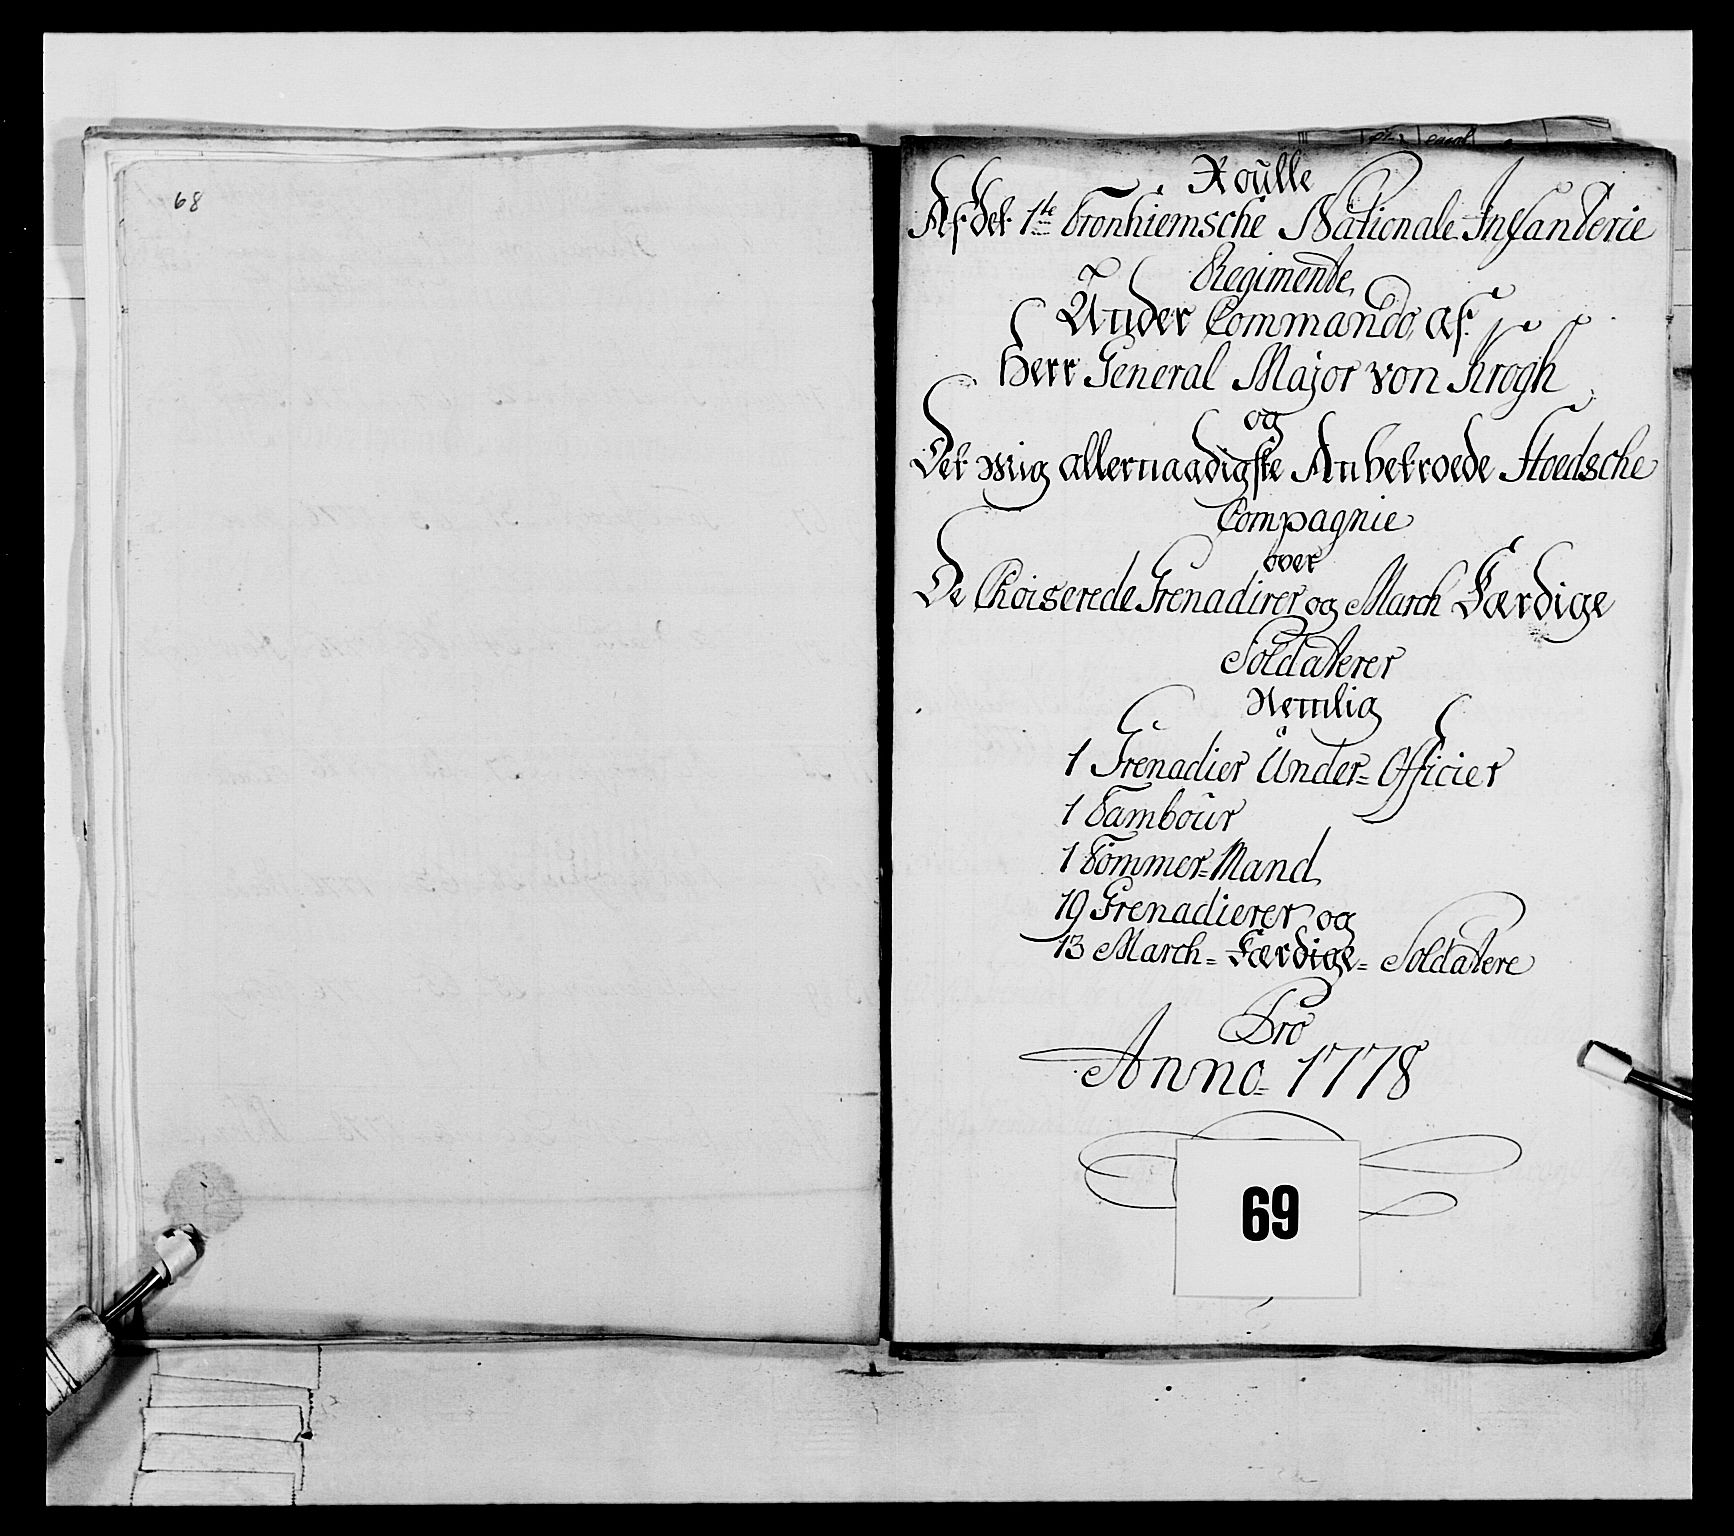 68
Roulle
Af det 1te Tronhiemsche Nationale Infanterie
Regimente,
Under Commando af
Herr General Major von Krogh
og
Det Mig allernaadigste Anbetroede Stoedsche
Compagnie
over
De Choiserede Grenadirer og March Færdige
Soldaterer
Nemlig
1 Grenadier Under= Officier
1 Tambour
1 Tømmer=Mand
19 Grenadierer og
13 March= Færdige= Soldatere
Pro
Anno= 1778
69